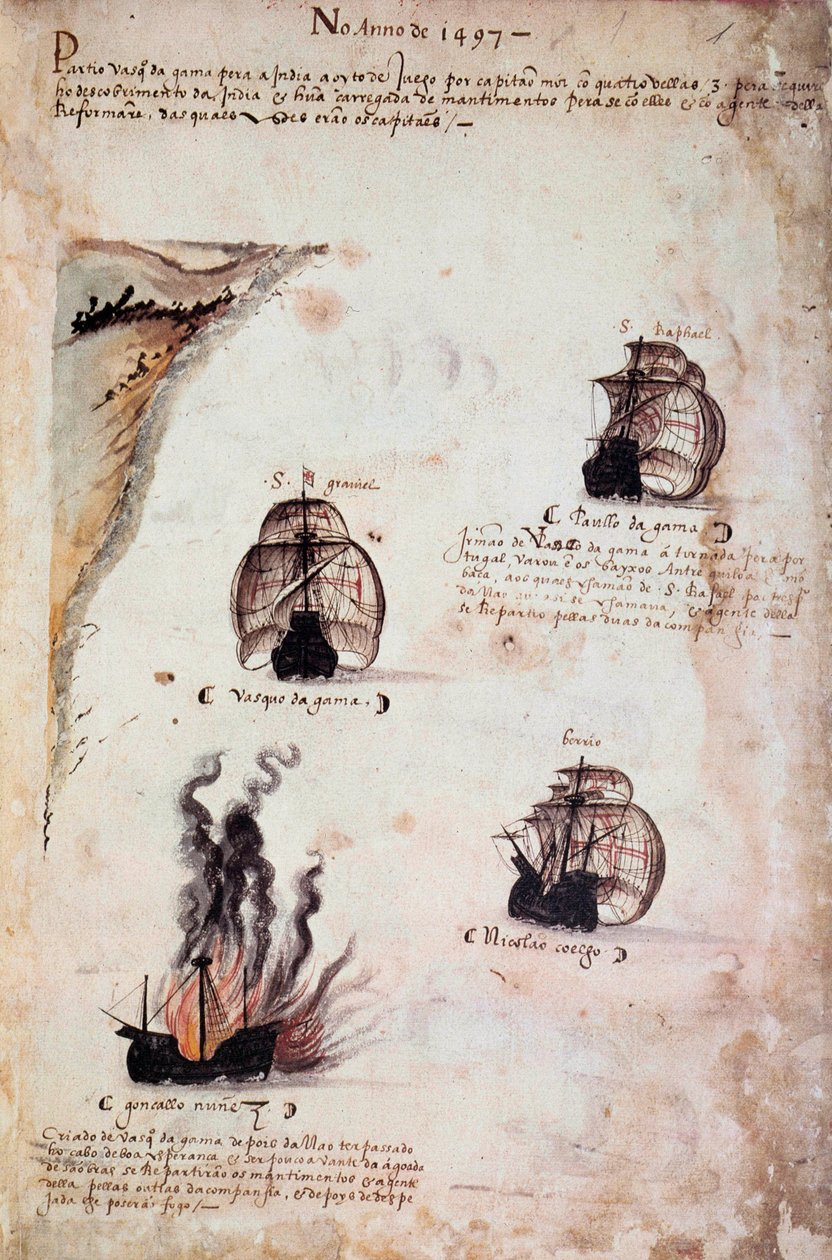 No Anno de 1497 —
1
Partio vasq̃ da gama pera a India a oyto de Julho por capitaõ mor cõ quatro vellas, 3. pera
ho descobrimento da India & huã carregada de mantimentos pera se cõ elles & cõ a gente della
Reformare, das quaes Vs des erão os capitaẽs /—
·S· Raphael
·S· graviel
Paullo da gama
Irmão de Vasco da gama á turnada pera por
tugal, varou ẽ os bayxos Antre quiloa & mõ
baça, aos quaes chamão de ·S· Rafael
da Nao se chamaua, & a gente della
se Repartio pellas duas da companhia, —
vasquo da gama,
berrio
Nicolao coelho
goncallo nuñez
Criado de vasq̃ da gama depois da Nao ter passado
ho cabo de boa esperança & ser pouco avante da agoada
de são bras se Repartirão os mantimentos & a gente
della pellas outras da companhia, & depoys de despe
jada lhe poserão fogo /—